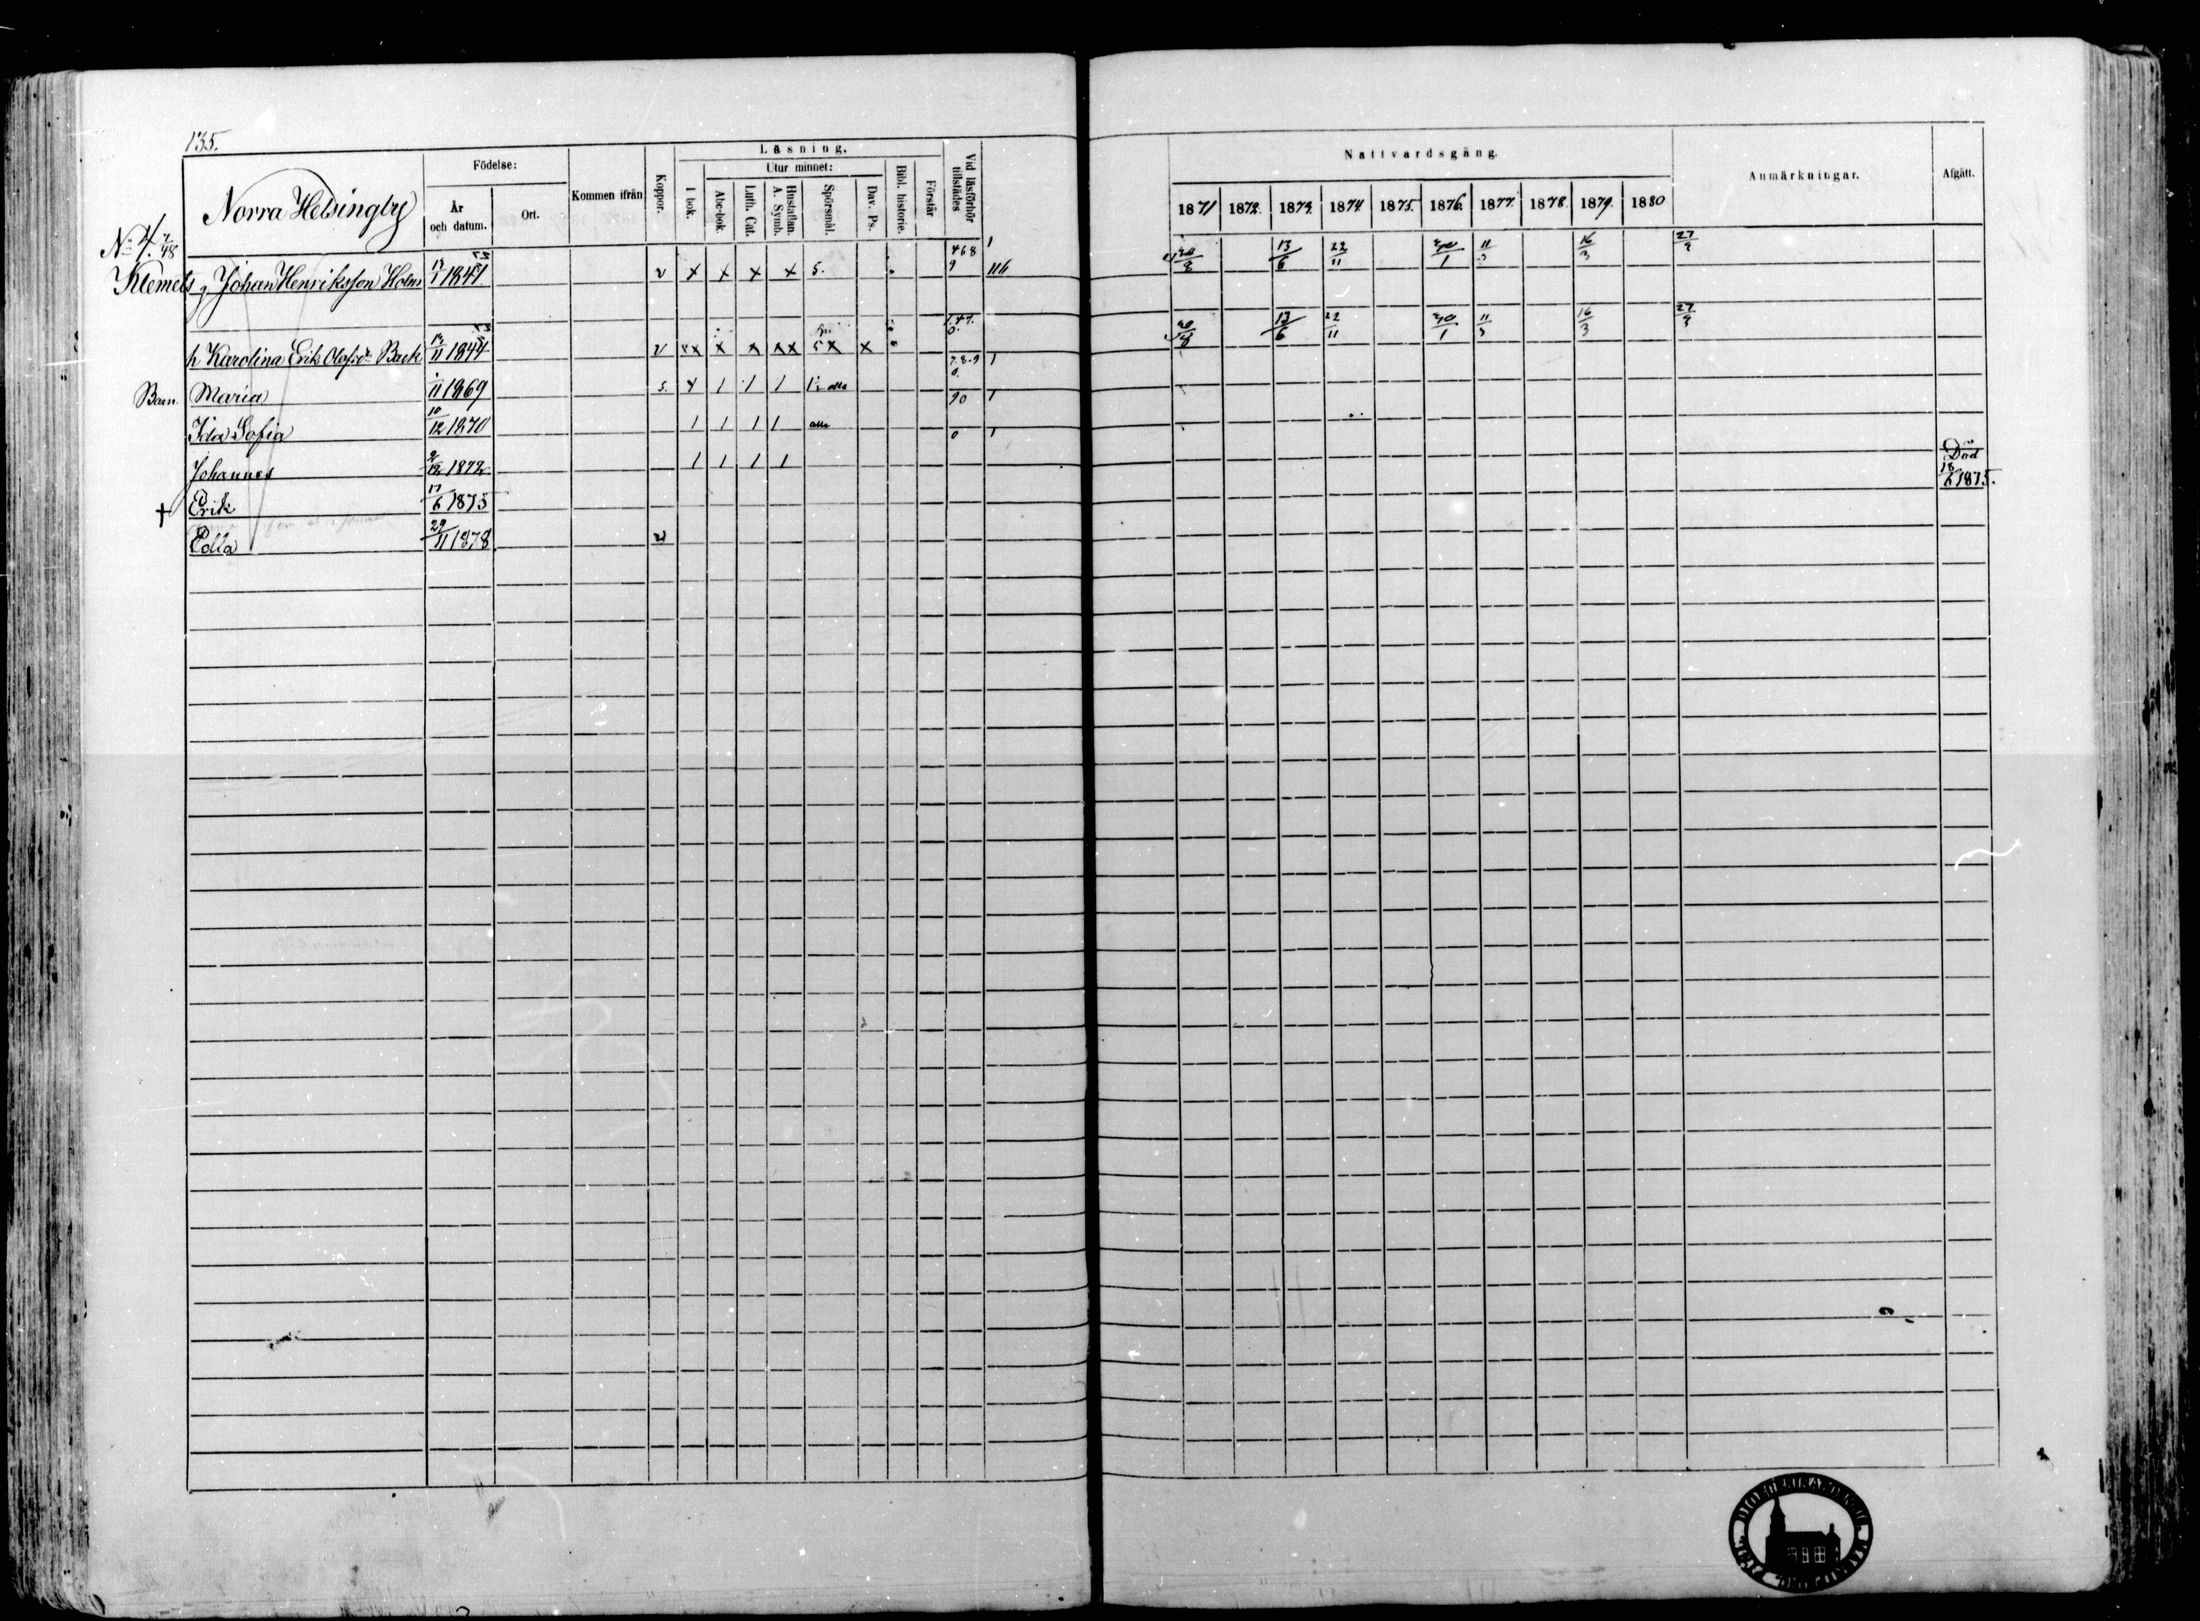 135.
Norra Helsingby
Födelse:
År och datum.
Ort.
Kommen ifrån
Koppor.
Läsning.
I bok.
Utur minnet:
Abc-bok.
Luth. Cat.
Hustaflan. A. Symb.
Spörsmål.
Dav. Ps.
Bibl. historie.
Förstår
Vid läsförhör tillstädes
Nattvardsgång.
1871 1872. 1873. 1874 1875. 1876. 1877. 1878. 1879. 1880
Anmärkningar.
Afgått.
No 4. 7/48
Klemets Johan Henriksson Holm 1841. v x x x x 5. 468 9 116 13/6 22/11 11/3 16/3 27/9
h Karolina Erik Olofsdr Back 1844 v x x x x x 5 x x 13/6 22/11 11/3 16/3 27/9
Barn. Maria 1869 s. x 1 1 1 alla 7.8.9 0. 1
Ida Sofia 10/12 1870 1 1 1 1 alla 90 1
Johannes 2/12 1872 1 1 1 1 0 1
† Erik 17/6 1875 Död 18/6 1875.
Edla 29/11 1878. v